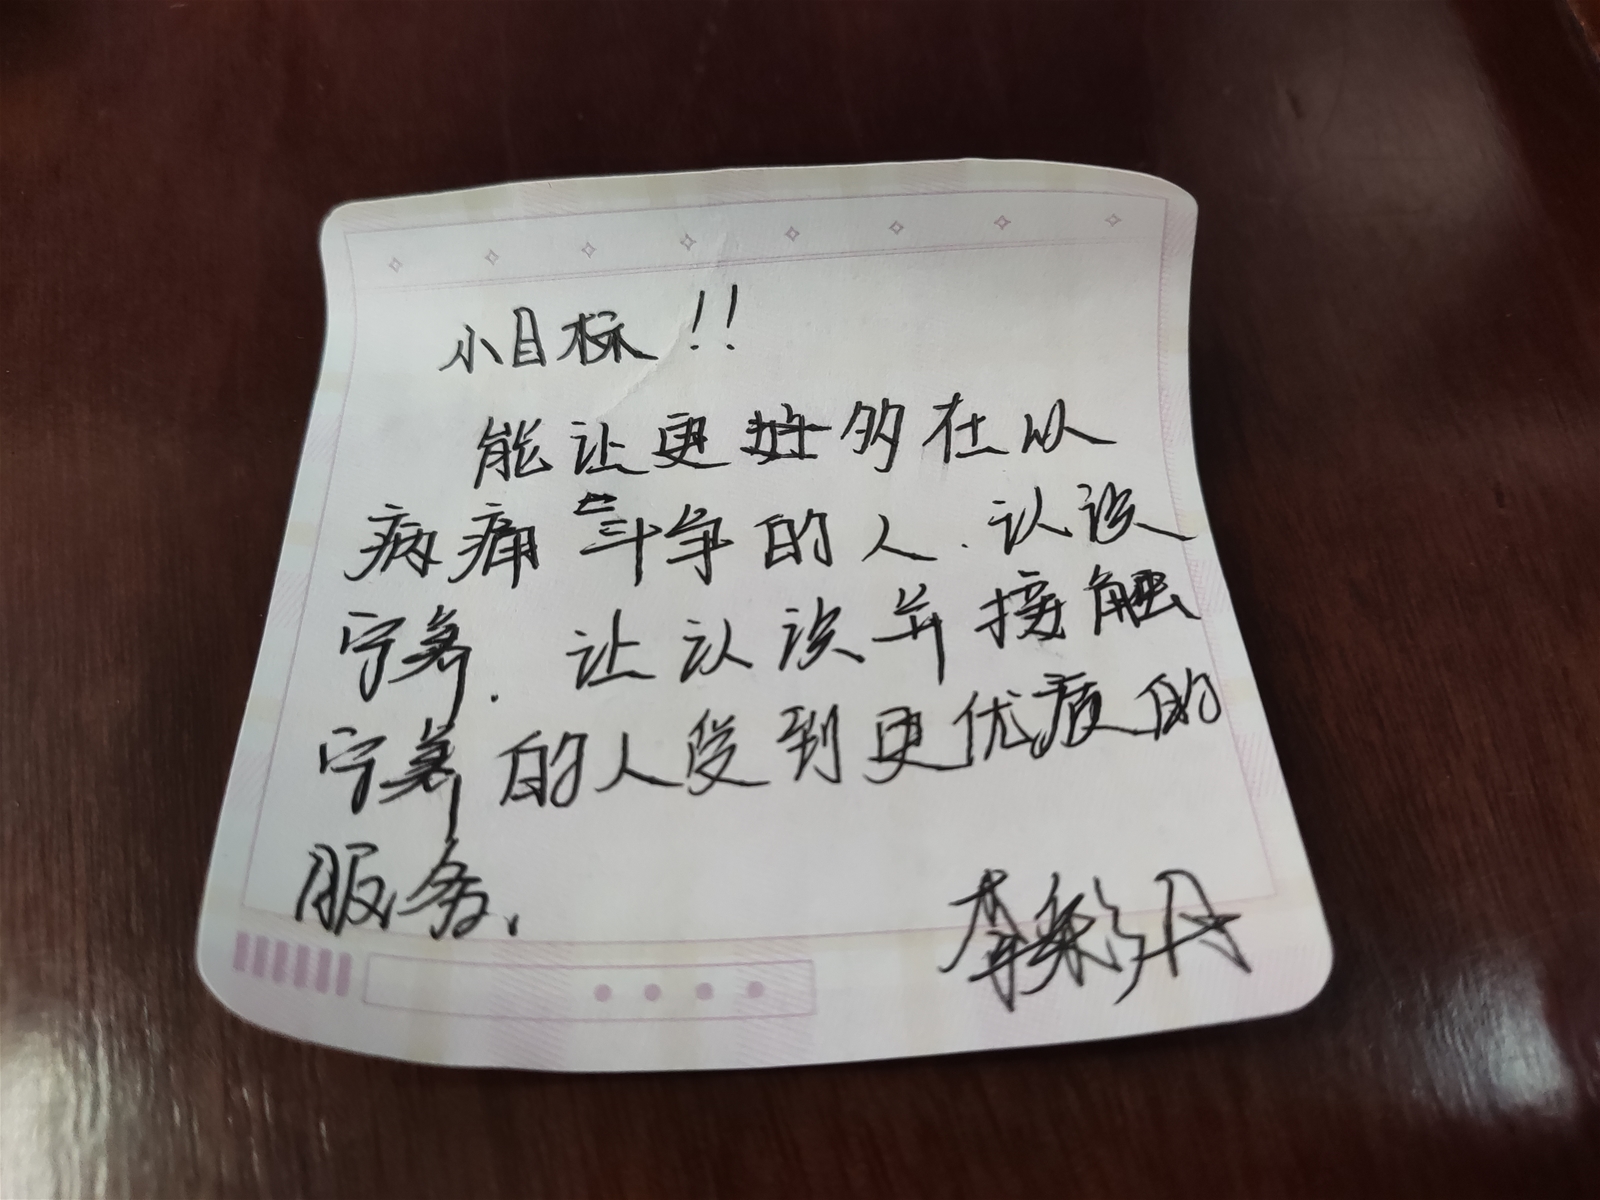 小目标!!
能让更多在从
病痛斗争的人.认识
宁养.让认识并接触
宁养的人受到更优质的
服务.
李彩丹